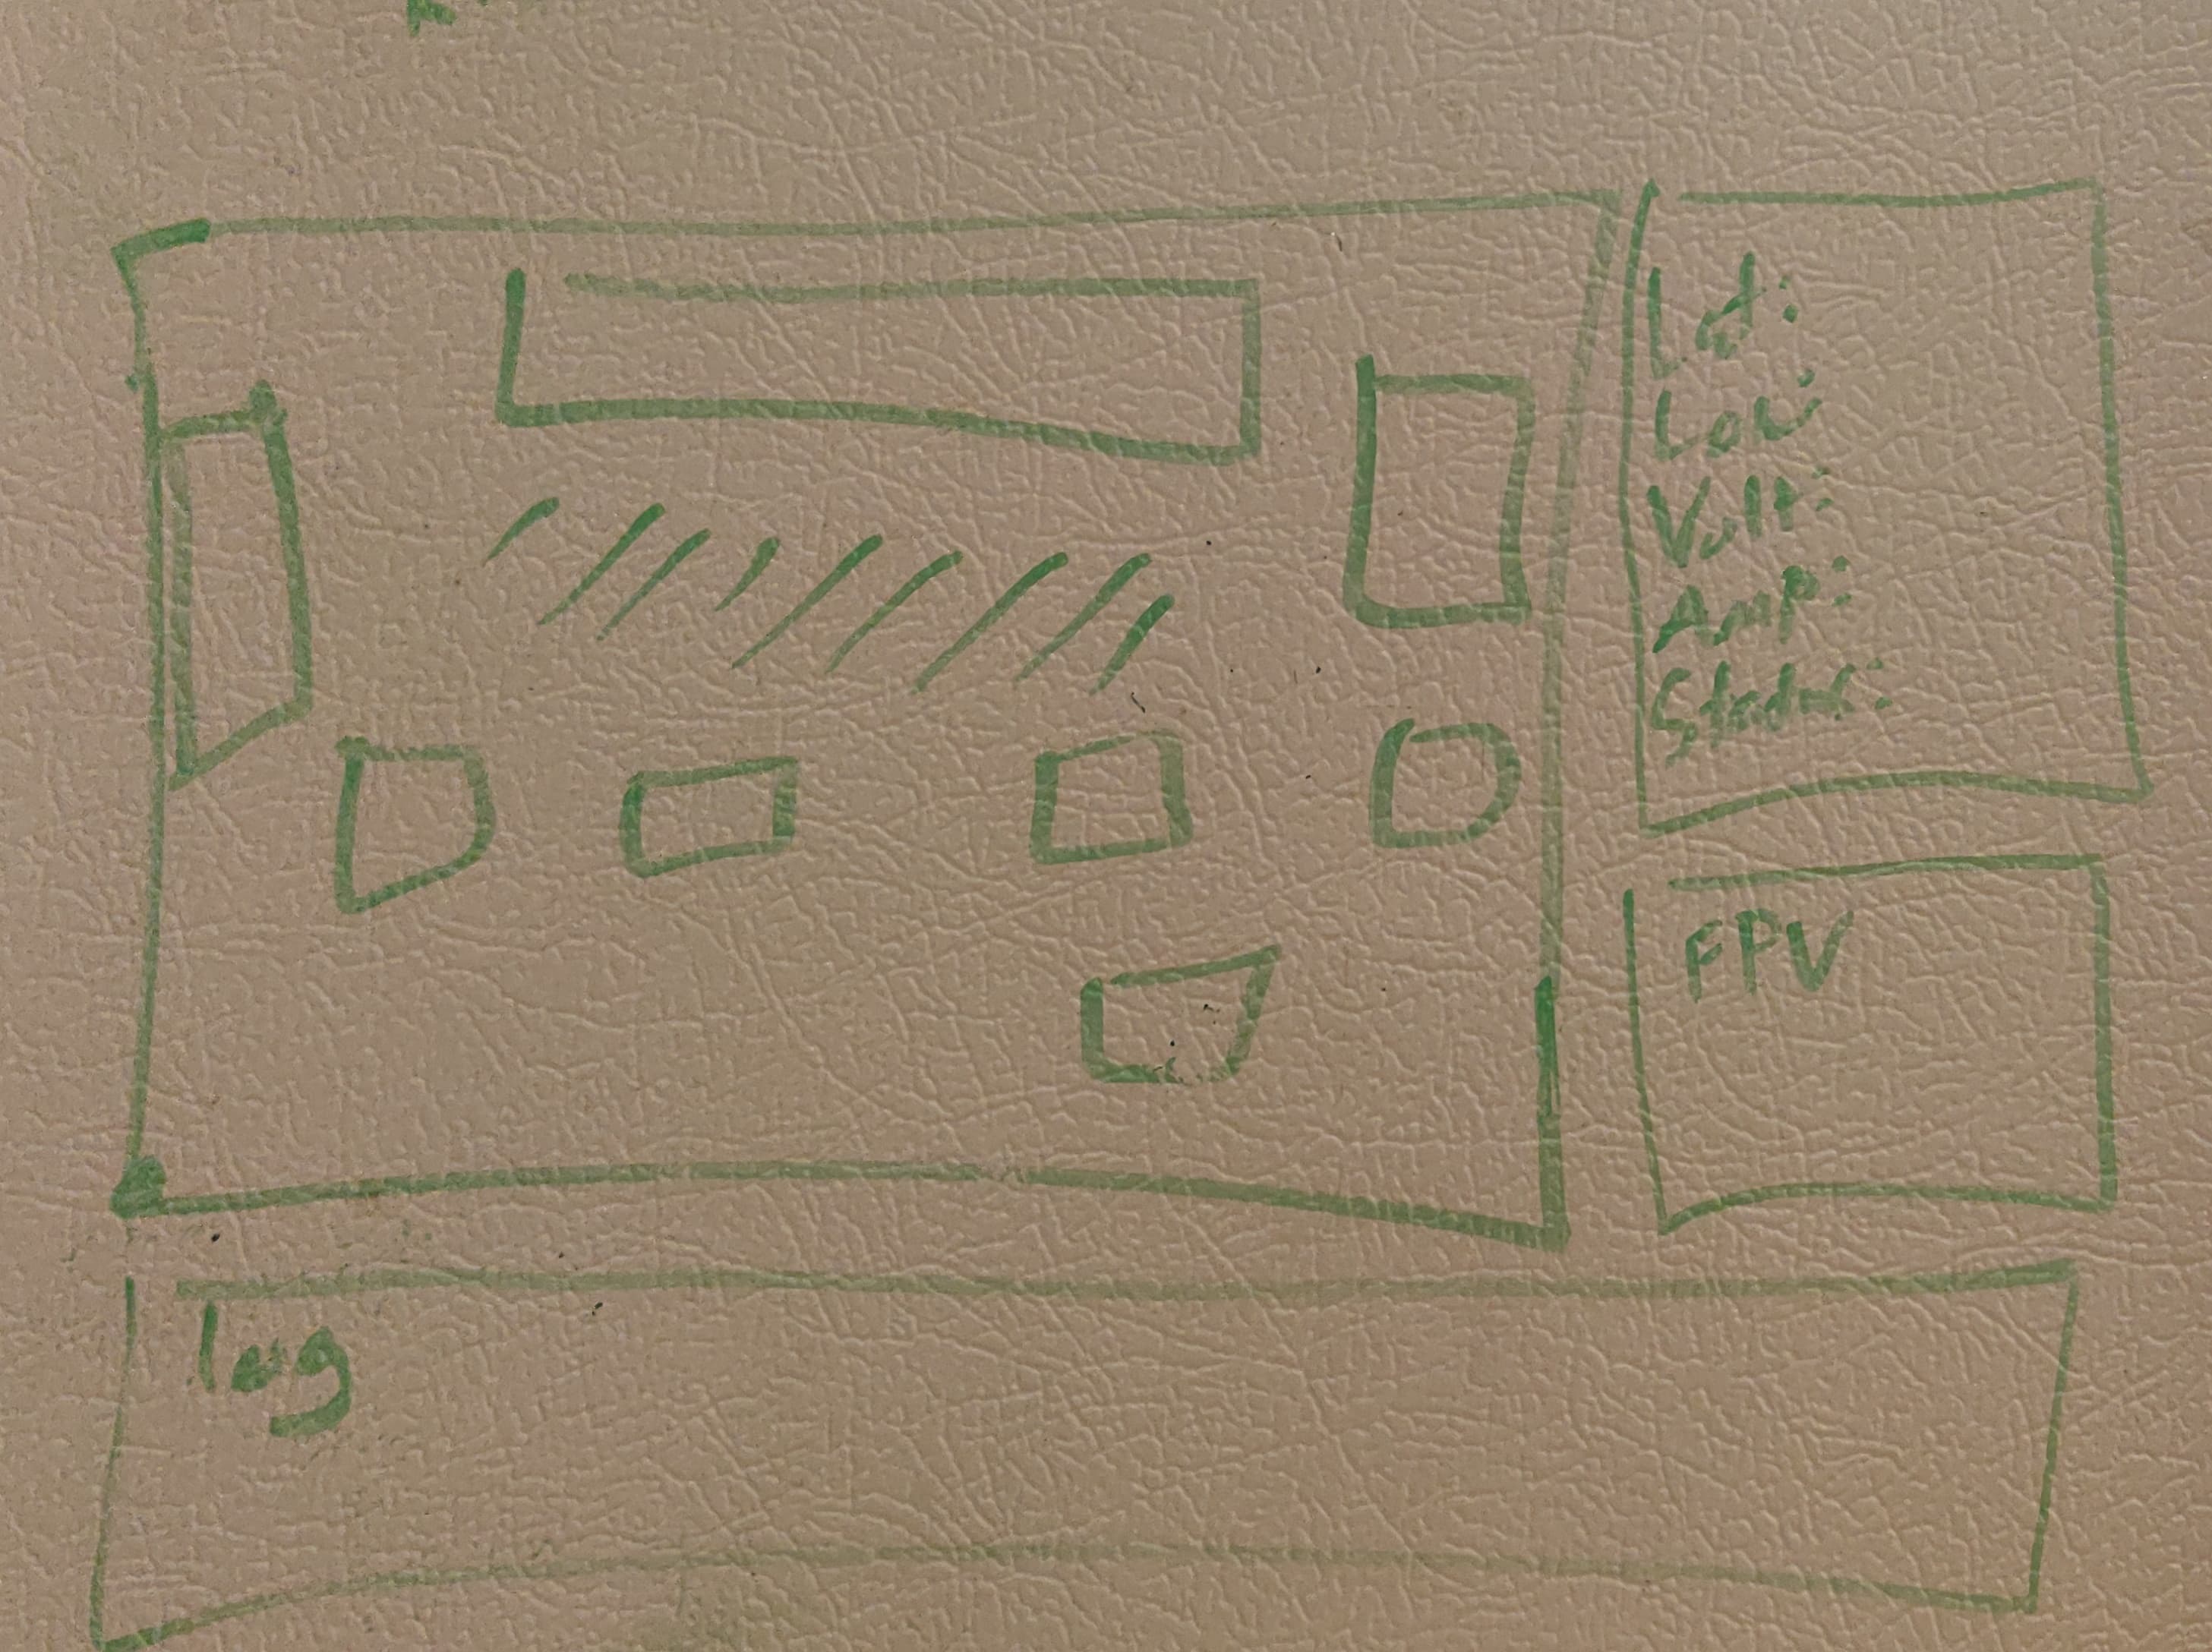 Lat:
Lon:
Volt:
Amp:
Status:
FPV
log